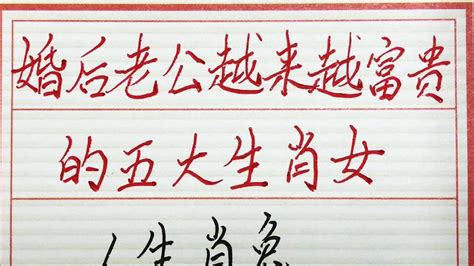 婚后老公越来越富贵
的五大生肖女
生肖兔